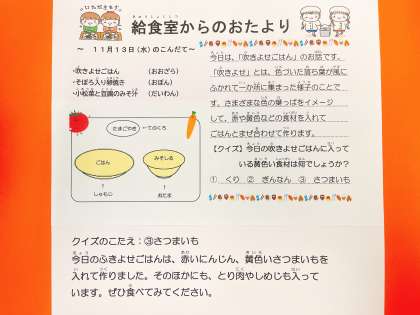 いただきます
給食室からのおたより
きゅうしょくしつ
～ 11月13日(水)のこんだて～
・吹きよせごはん (おおざら)
・そぼろ入り卵焼き (おぼん)
・小松菜と豆腐のみそ汁 (だいわん)
たまごやき
ごはん
みそしる
しゃもじ
おたま
今日は、「吹きよせごはん」のお話です。
「吹きよせ」とは、色づいた落ち葉が風に
ふかれて一か所に集まった様子のことで
す。さまざまな色の葉っぱをイメージ
して、赤や黄色などの食材を入れて
ごはんとまぜ合わせて作ります。
【クイズ】今日の吹きよせごはんに入って
いる黄色い食材は何でしょうか?
① くり ② ぎんなん ③ さつまいも
クイズのこたえ:③さつまいも
今日のふきよせごはんは、赤いにんじん、黄色いさつまいもを
入れて作りました。そのほかにも、とり肉やしめじも入って
います。ぜひ食べてみてください。